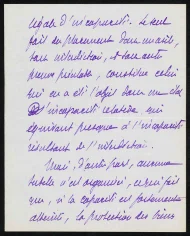 légale d'incapacité. Le seul
fait du placement dans un asile,
sans interdiction, et sans autre
preuve préalable, constitue celui
qui en a été l'objet dans un état
d'incapacité relative qui
équivaut presque à l'incapacité
résultant de l'interdiction.
Mais, d'autre part, aucune
tutelle n'est organisée, ce qui fait
que, si la capacité est fortement
atteinte, la protection des biens